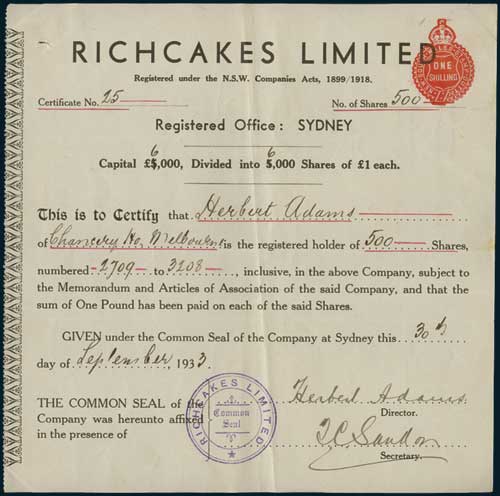 RICHCAKES LIMITED
Registered under the N.S.W. Companies Acts, 1899/1918.
ONE
SHILLING
Certificate No. 25
No. of Shares 500
Registered Office: SYDNEY
6 6
Capital £5,000, Divided into 5,000 Shares of £1 each.
This is to Certify that Herbert Adams
of Chancery Ho, Melbourne is the registered holder of 500 Shares,
numbered 2709 to 3208, inclusive, in the above Company, subject to
the Memorandum and Articles of Association of the said Company, and that the
sum of One Pound has been paid on each of the said Shares.
GIVEN under the Common Seal of the Company at Sydney this 30th
day of September, 1933.
THE COMMON SEAL of the
Company was hereunto affixed
in the presence of
RICHCAKES LIMITED
Common
Seal
Herbert Adams
Director.
Secretary.